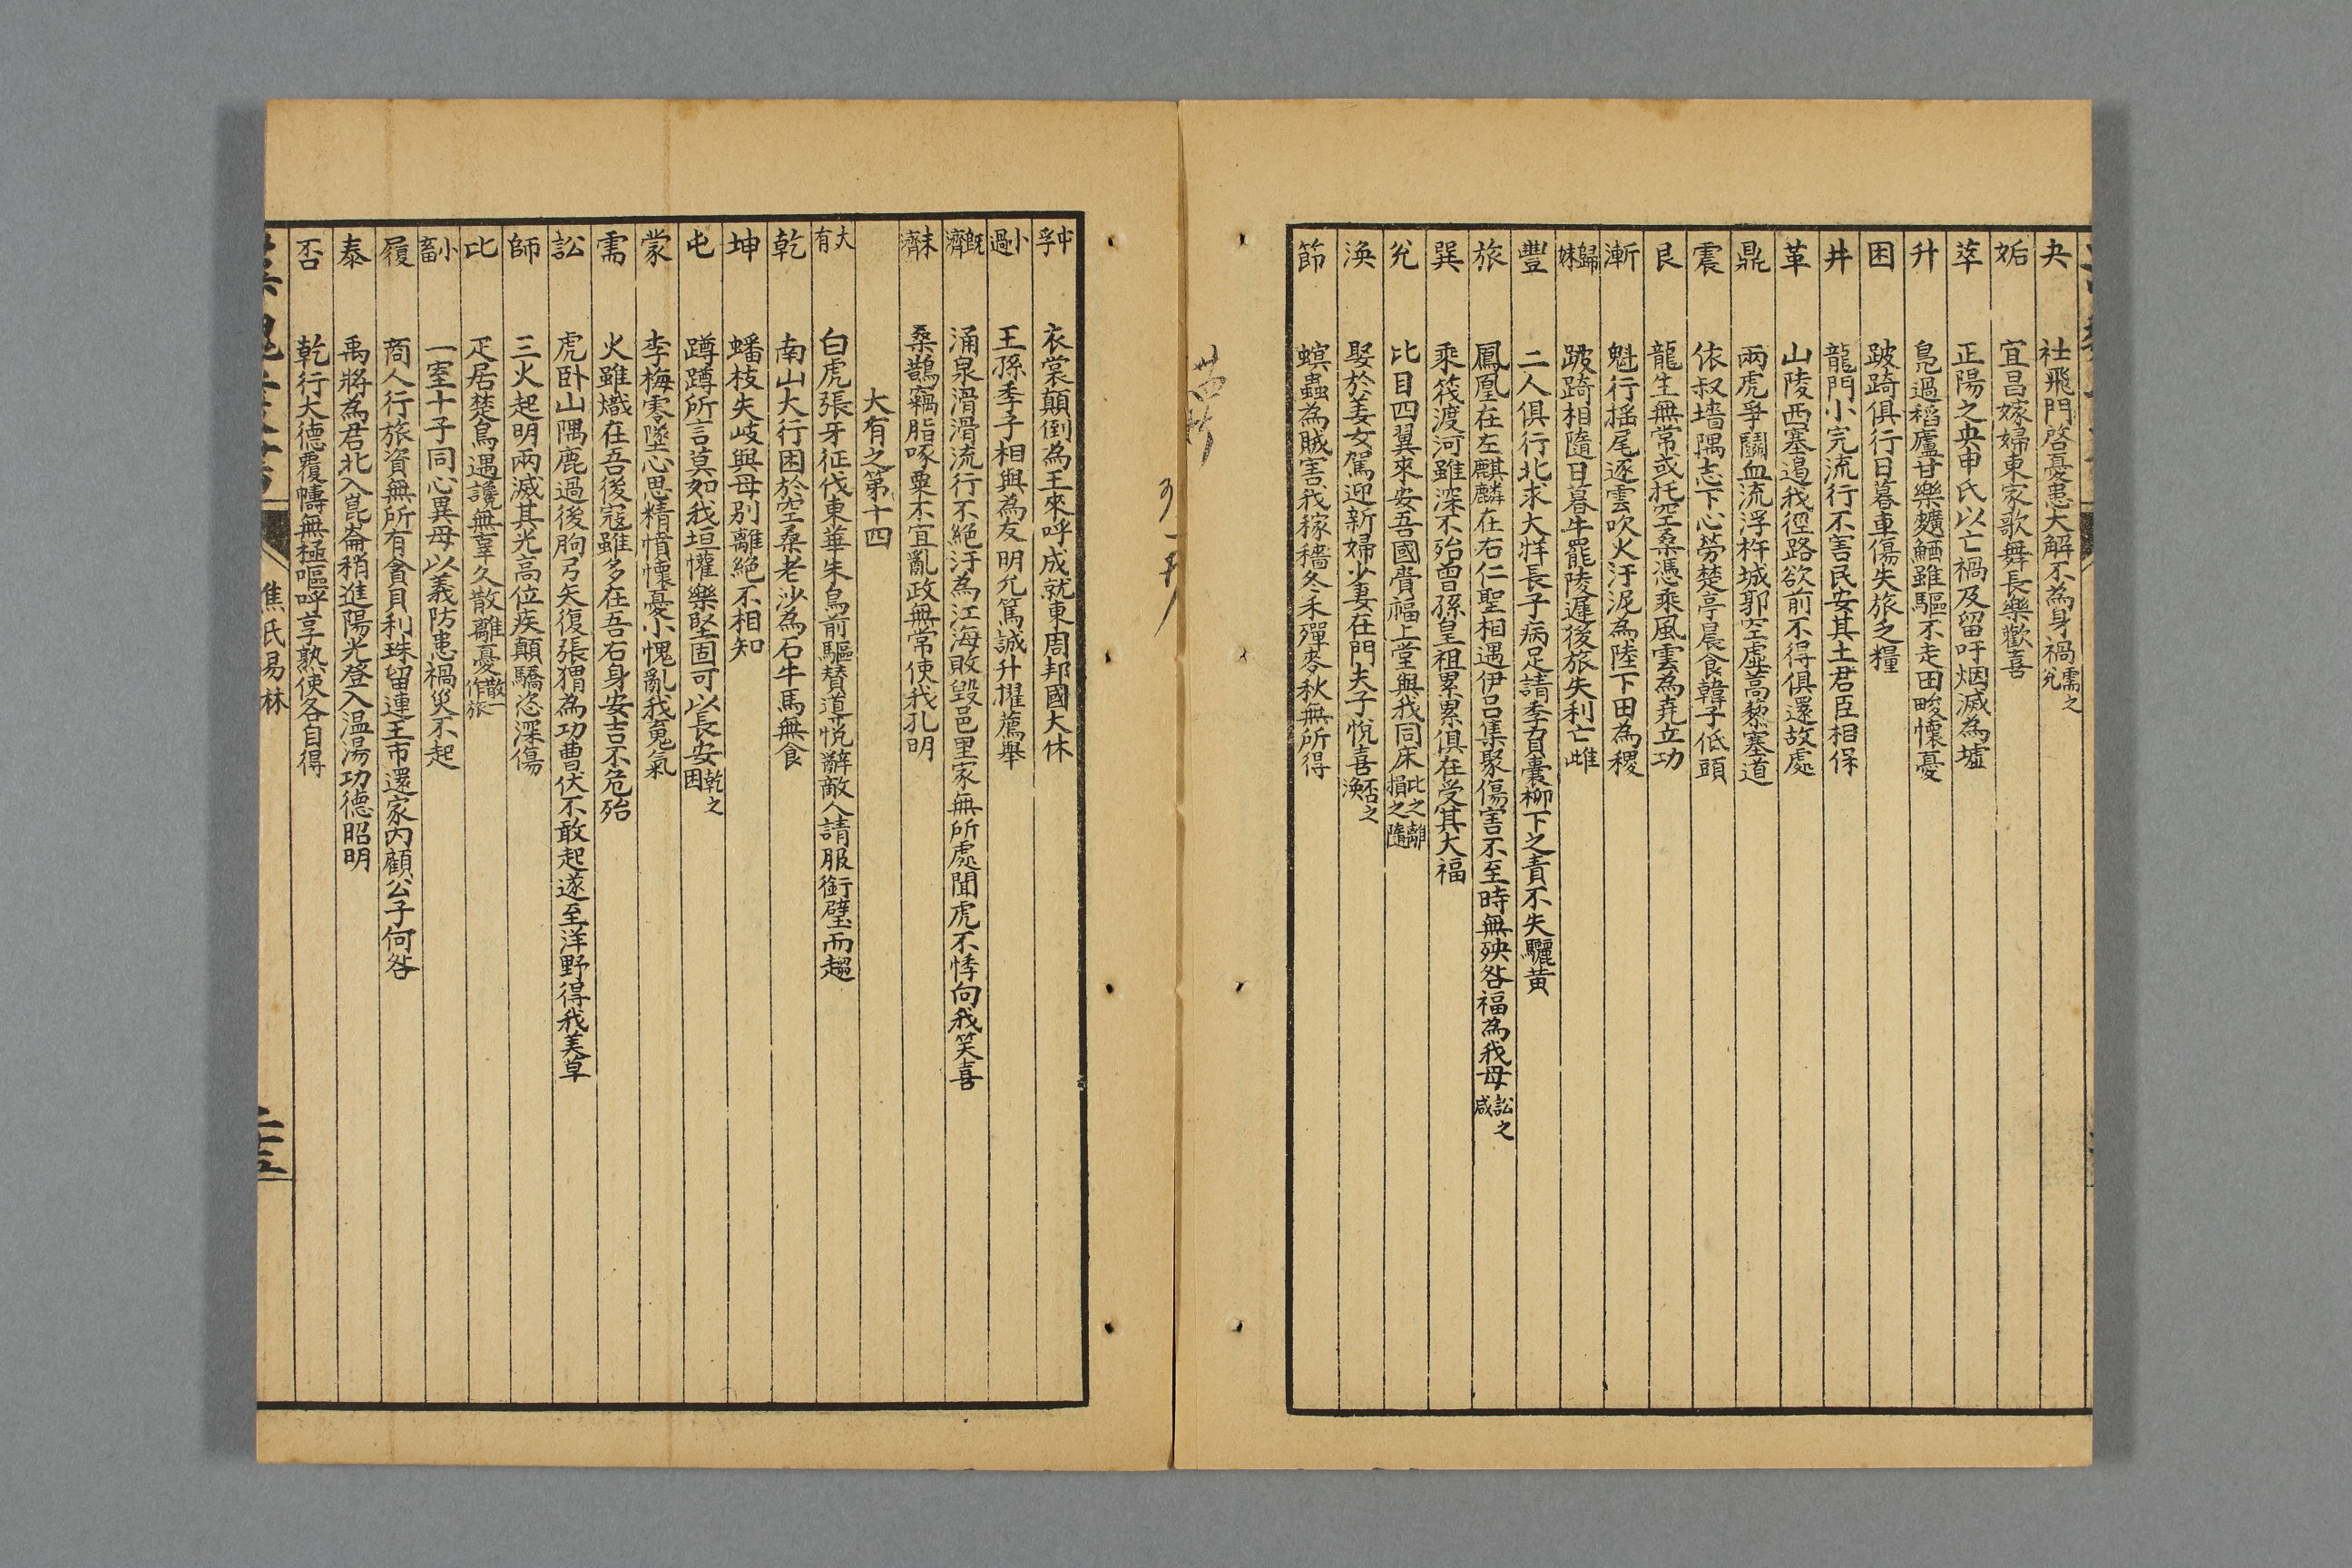 夬 社飛門啓憂患大解不為身禍需之兊
姤 宜昌嫁婦東家歌舞長樂歡喜
萃 正陽之央申氏以亡禍及留吁烟滅為墟
升 鳬過稻廬甘樂䵃鰌雖驅不走田畯懷憂
困 跛踦俱行日暮車傷失旅之糧
井 龍門小完流行不害民安其土君臣相保
革 山陵西塞遏我徑路欲前不得俱還故處
鼎 兩虎爭鬭血流浮杵城郭空虛蒿藜塞道
震 依叔墻隅志下心勞楚亭晨食韓子低頭
艮 龍生無常或托空桑憑乘風雲為堯立功
漸 魁行搖尾逐雲吹火汙泥為陸下田為稷
歸妹 跛踦相隨日暮牛罷陵遲後旅失利亡雌
豐 二人俱行北求大牂長子病足請季負囊柳下之責不失驪黃
旅 鳳凰在左麒麟在右仁聖相遇伊呂集聚傷害不至時無殃咎福為我母訟之咸
巽 乘筏渡河雖深不殆曾孫皇祖累累俱在受其大福
兊 比目四翼來安吾國賫福上堂與我同床比之離損之隨
渙 娶於姜女駕迎新婦少妻在門夫子悅喜否之渙
節 螟蟲為賊害我稼穡冬禾殫麥秋無所得
中孚 衣裳顛倒為王來呼成就東周邦國大休
小過 王孫季子相與為友明允篤誠升擢薦舉
既濟 涌泉滑滑流行不絕汙為江海敗毀邑里家無所處聞虎不悸向我笑喜
未濟 桑鵲竊脂啄粟不宜亂政無常使我孔明
大有之第十四
大有 白虎張牙征伐東華朱鳥前驅贊道悅辭敵人請服銜璧而趨
乾 南山大行困於空桑老沙為石牛馬無食
坤 蟠枝失岐與母别離絕不相知
屯 蹲蹲所言莫如我垣懽樂堅固可以長安乾之困
蒙 李梅零墜心思精憒懷憂小愧亂我䰟氣
需 火雖熾在吾後寇雖多在吾右身安吉不危殆
訟 虎卧山隅鹿過後朐弓矢復張猬為功曹伏不敢起遂至洋野得我美草
師 三火起明雨滅其光高位疾顛驕恣深傷
比 疋居楚鳥遇讒無辜久散離憂散一作旅
小畜 一室十子同心異母以義防患禍災不起
履 商人行旅資無所有貪貝利珠留連王市還家內顧公子何咎
泰 禹將為君北入崑崙稍進陽光登入温湯功德昭明
否 乾行大德覆幬無極嘔呼享熟使各自得
焦氏易林